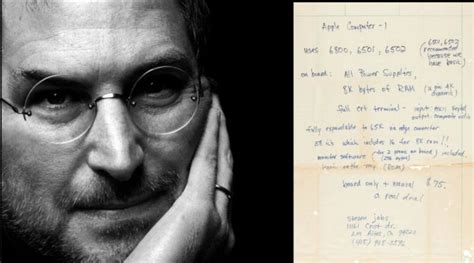 Apple Computer - 1
uses 6800, 6501, 6502
(6501, 6502 recommended because we have basic)
on board: All Power Supplies,
8K bytes of RAM (16 pin 4K dynamic)
full crt terminal - input: ASCII
output: composite video
fully expandable to 65K via edge connector
58 IC's which includes 16 for 8K ram!!
monitor software included
board only + manual $75,
a real deal
steven jobs
11161 Crist dr.
Los Altos, Ca 94022
(415)